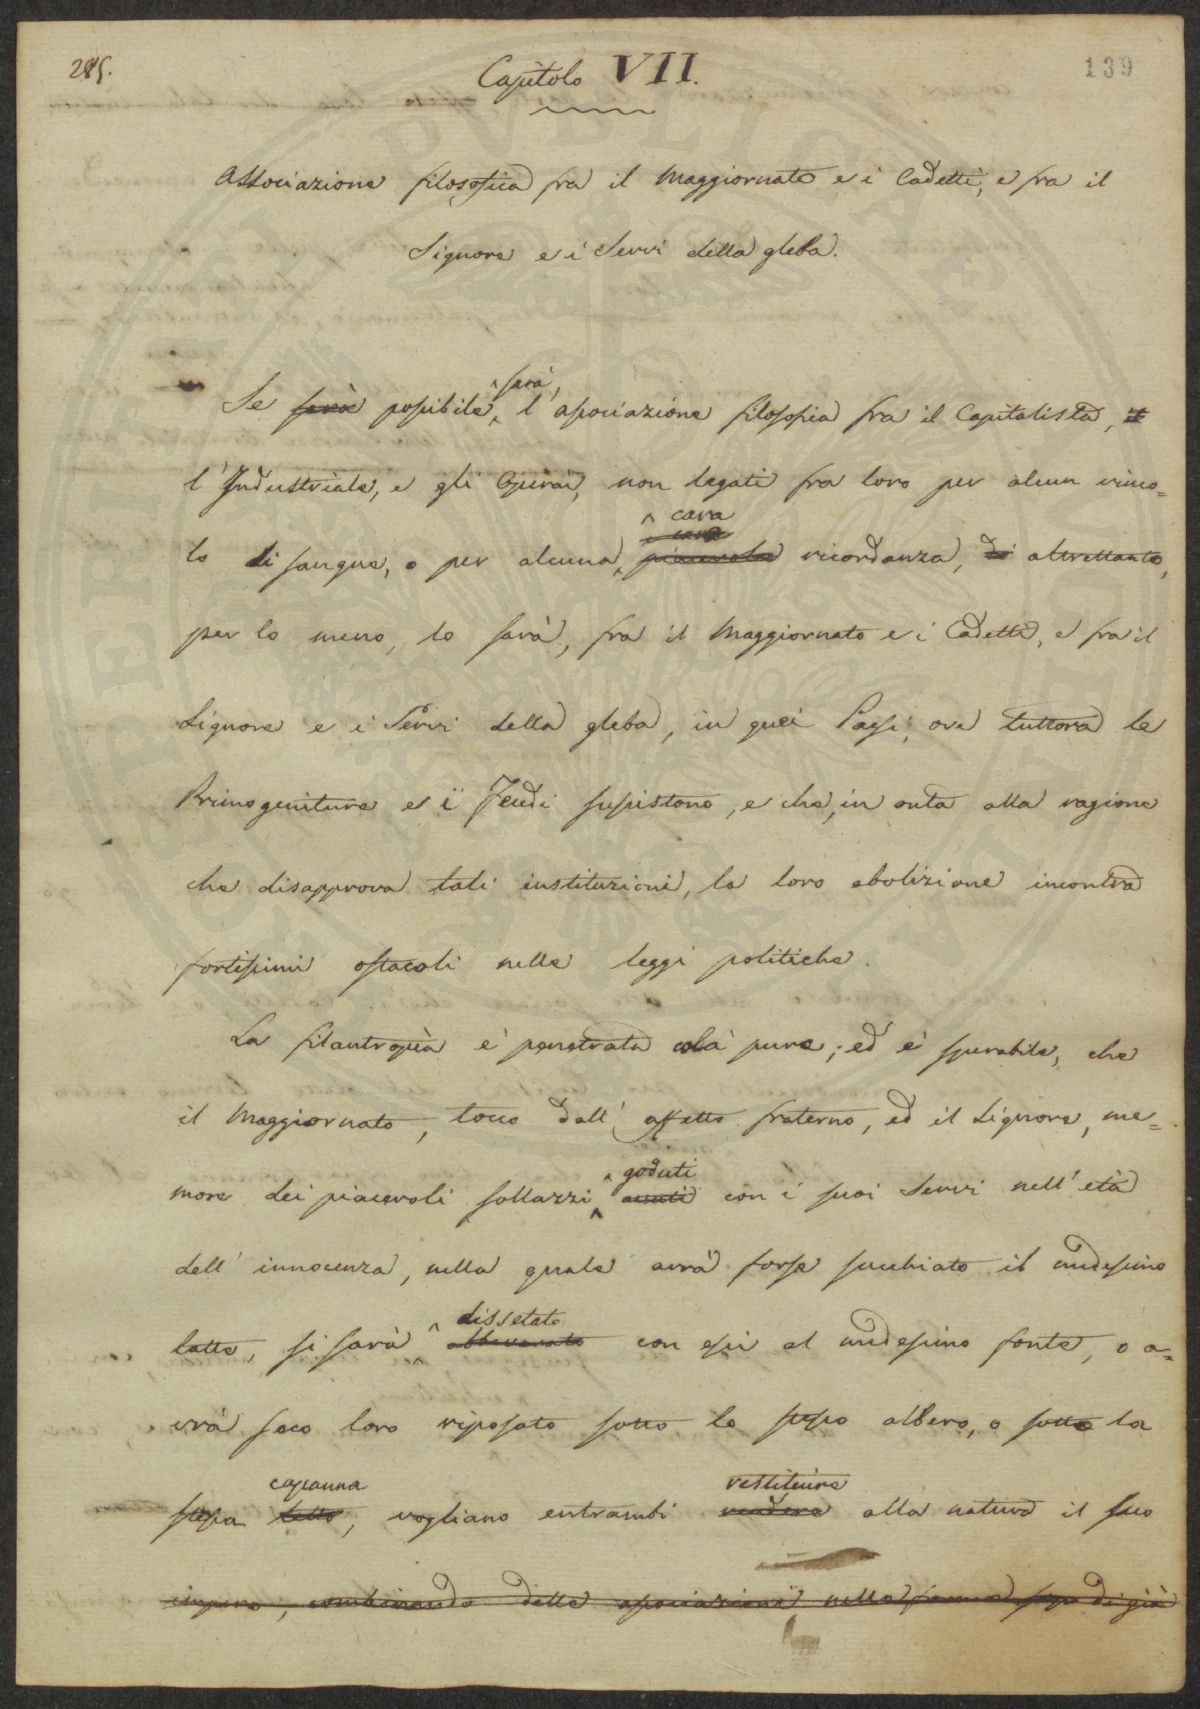 285.
Capitolo VII.
139
Associazione filosofica fra il Maggiornato e i Cadetti, e fra il
Signore e i Servi della gleba.
Se sarà possibile, sarà, l'associazione filosofica fra il Capitalista, il
l'Industriale, e gli Operai, non legati fra loro per alcun vinco=
lo di sangue, o per alcuna, cara piacevole ricordanza, di altrettanto,
per lo meno, lo sarà, fra il Maggiornato e i Cadetti, e fra il
Signore e i Servi della gleba, in quei Paesi, ove tuttora le
Primogeniture e i Feudi sussistono, e che, in onta alla ragione
che disapprova tali instituzioni, la loro abolizione incontra
fortissimi ostacoli nelle leggi politiche.
La filantropia è penetrata colà pure; ed è sperabile, che
il Maggiornato, tocco dall'affetto fraterno, ed il Signore, me=
more dei piacevoli sollazzi goduti avuti con i suoi Servi nell'età
dell'innocenza, nella quale avrà forse succhiato il medesimo
latte, si sarà dissetato abbeverato con essi al medesimo fonte, o a=
vrà seco loro riposato sotto lo stesso albero, o sotto la
stessa capanna tetto, vogliano entrambi restituire rendere alla natura il suo
impero, combinando delle associazioni nella forma di già